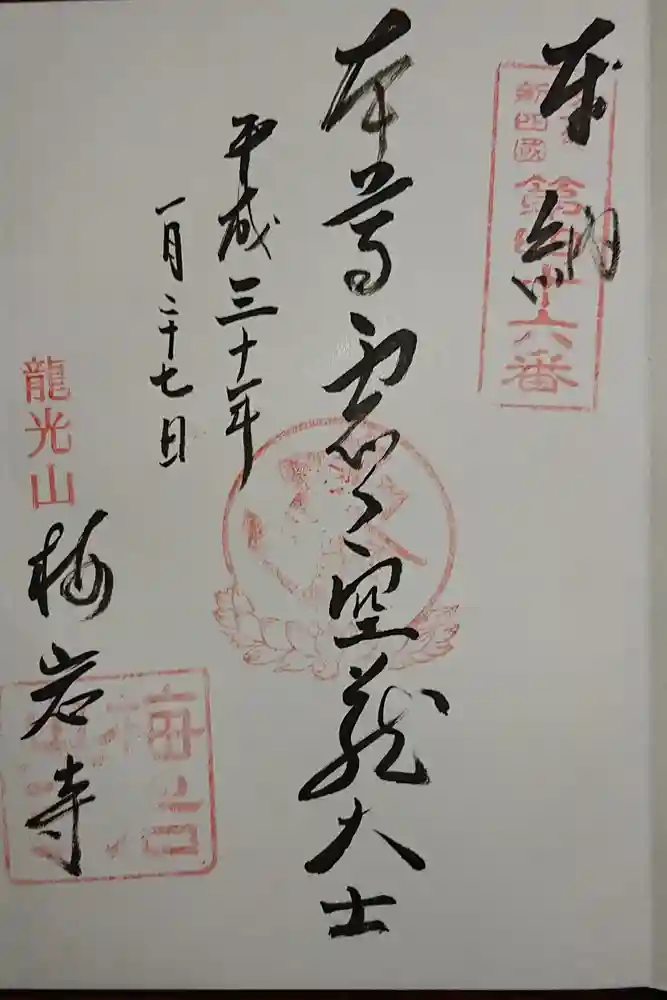 奉納
新四國
第四十六番
本尊虚空蔵大士
平成三十年
一月二十七日
龍光山
梅岩寺